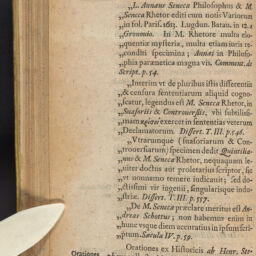 „L. Annæus Seneca Philosophus & M.
„Seneca Rhetor editi cum notis Variorum
„in fol. Paris. 1613. Lugdun. Batav. in 12. a
„Gronovio. In M. Rhetore multa elo-
„quentiæ mysteria, multa etiam juris re-
„condita specimina; Annæi in Philoso-
„phia parænetica magna vis. Comment. de
Script. p. 54.
„Interim vt de pluribus istis differentiis
„& censura sententiarum aliquid cogno-
„scatur, legendus est M. Seneca Rhetor, in
„Suasoriis & Controversiis, vbi subinde
„excerpit in sententias veterum
„Declamatorum. Dissert. T. III. p. 546.
„Vtrarumque (suasoriarum & Con-
„troversiarum) specimen dedit Quintilia-
„nus & M. Seneca Rhetor, nequaquam le-
„uiter doctus aut proletarius scriptor, se
„vt nonnemo temere iudicauit; sed do-
„ctissimi vir ingenii, singularisque indu-
„striæ. Dissert. T. III. p. 557.
„De M. Seneca præclare meritus est An-
„dreas Schottus; non habemus enim in
„hunc vsque diem accuratius in ipsum scri-
„ptum. Sæcula IV. p. 59.
Orationes ex Historicis ab Henr. Ste-
Orationes